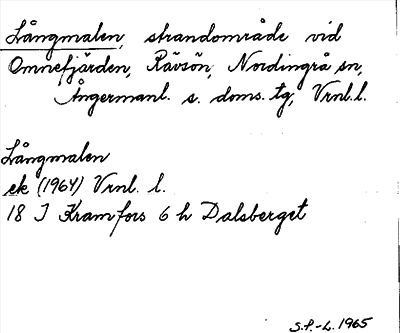 Långmalen, strandområde vid
Omnefjärden, Rävsön, Nordingrå sn,
Ångermanl. s. doms. tg, Vrnl. l.
Långmalen
ek (1964) Vrnl. l.
18 J Kramfors 6 h Dalsberget
S.P.-L. 1965